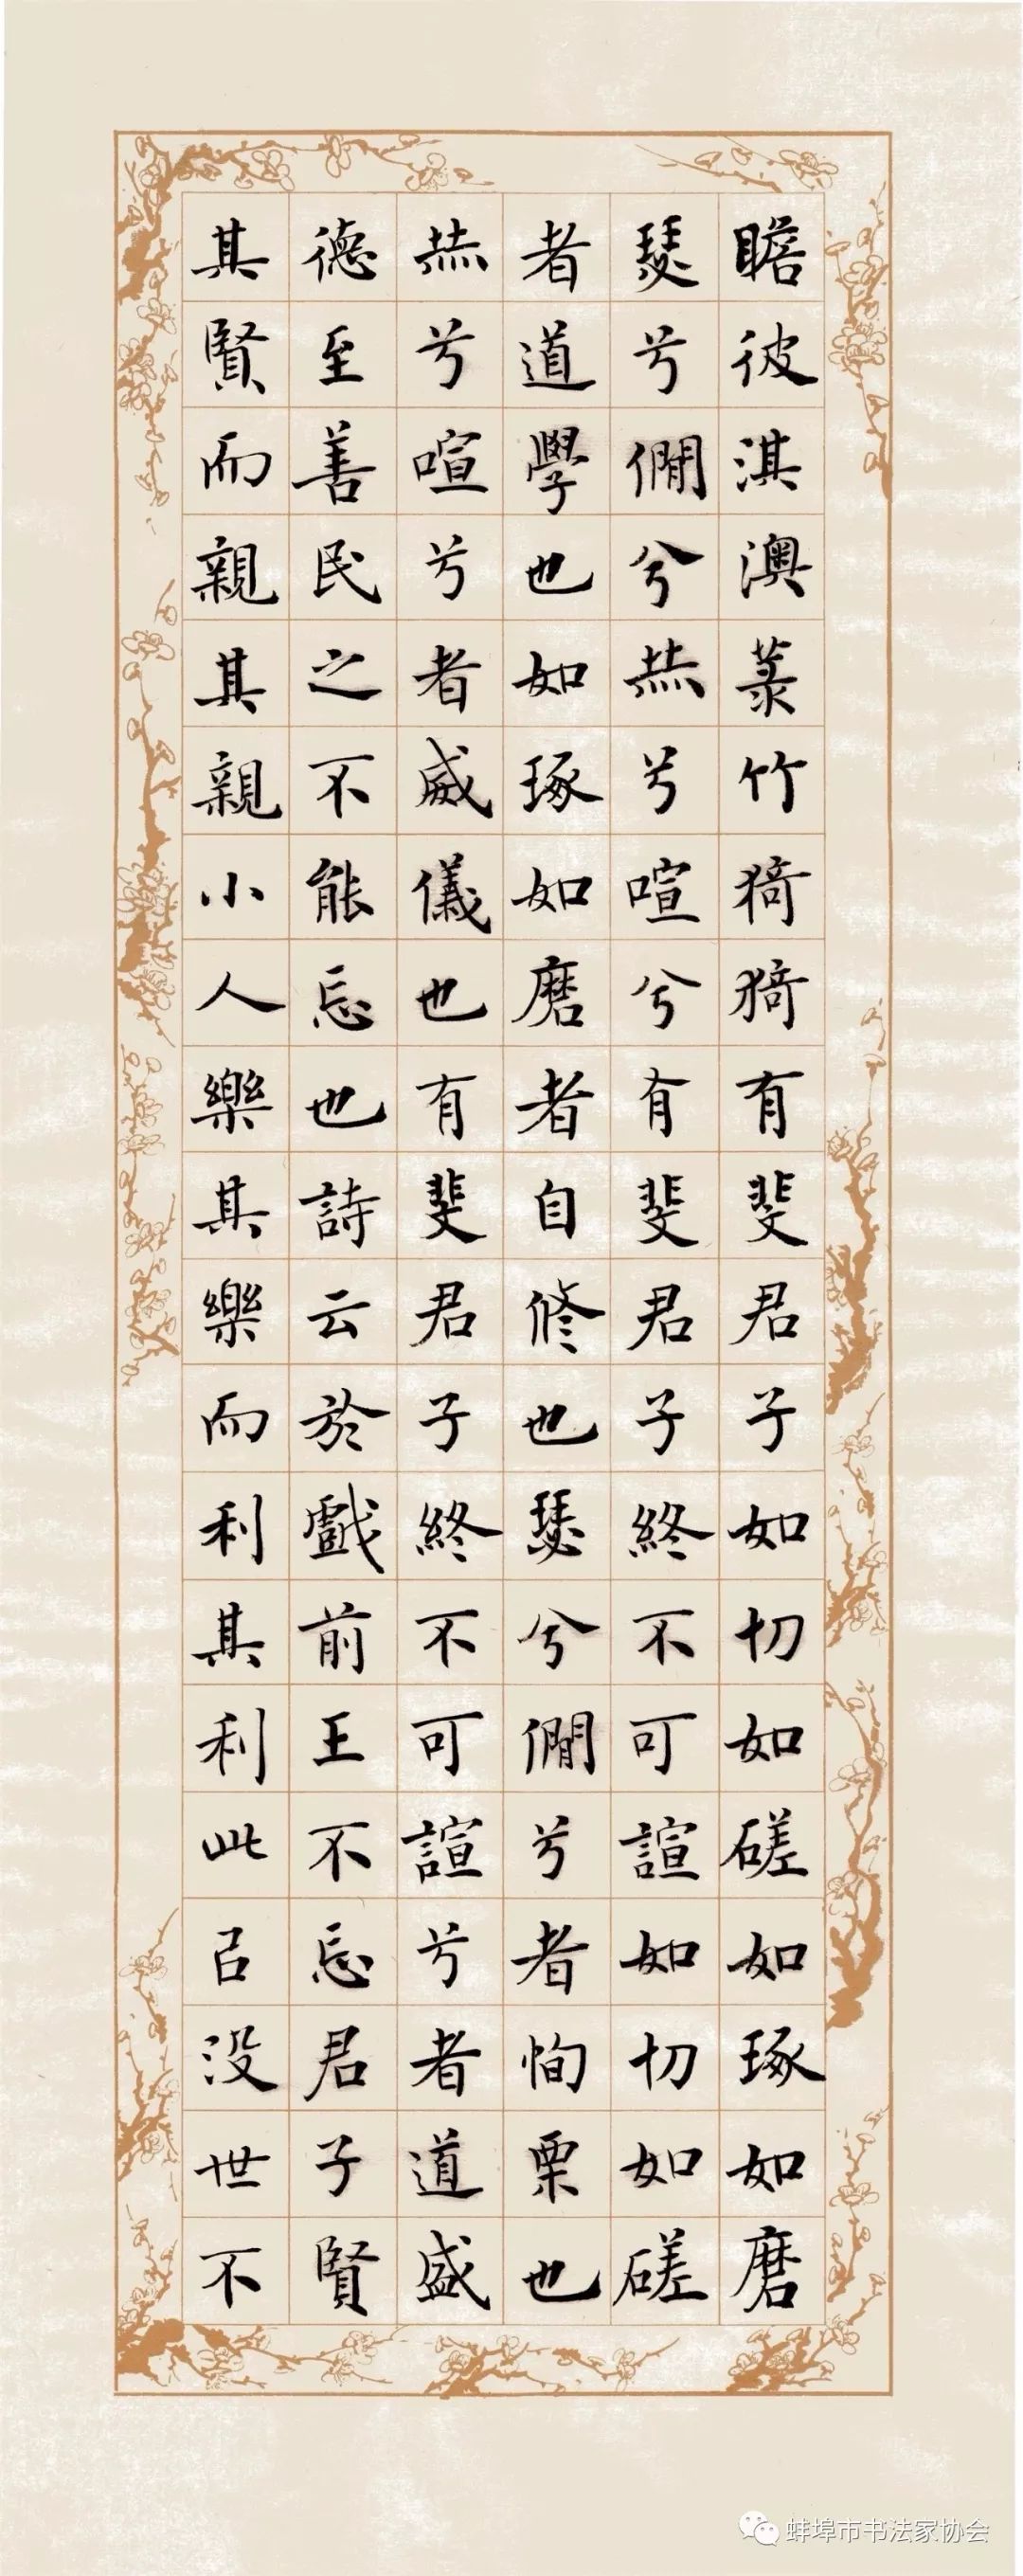 瞻彼淇澳菉竹猗猗有斐君子如切如磋如琢如磨
瑟兮僩兮赫兮喧兮有斐君子終不可諠如切如磋
者道學也如琢如磨者自修也瑟兮僩兮者恂栗也
赫兮喧兮者威儀也有斐君子終不可諠兮者道盛
德至善民之不能忘也詩云於戲前王不忘君子賢
其賢而親其親小人樂其樂而利其利此㠯没世不
蚌埠市书法家协会